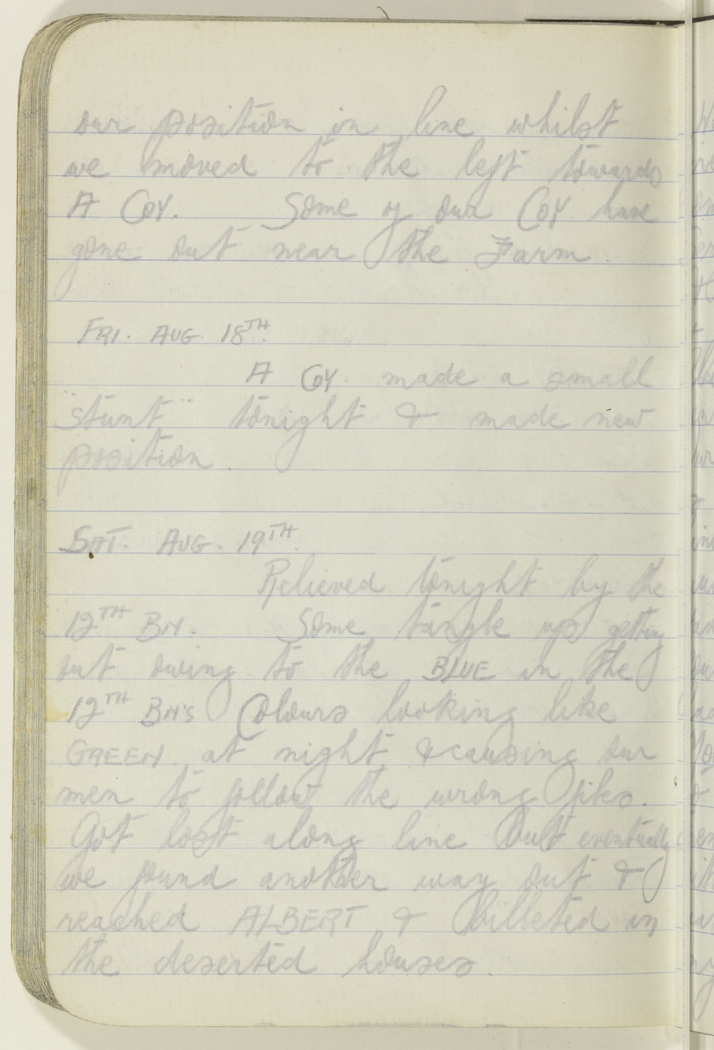 our position in line whilst
we moved to the left towards
A Coy. Some of our Coy have
gone out near the Farm.
FRI. AUG 18TH.
A Coy. made a small
"stunt" tonight & made new
position.
SAT. AUG. 19TH.
Relieved tonight by the
12TH BN. Some tangle up getting
out owing to the BLUE in the
12TH BN'S Colours looking like
GREEN at night & causing our
men to follow the wrong
Got lost along line but eventually
we found another way out &
reached ALBERT & billeted in
the deserted houses.